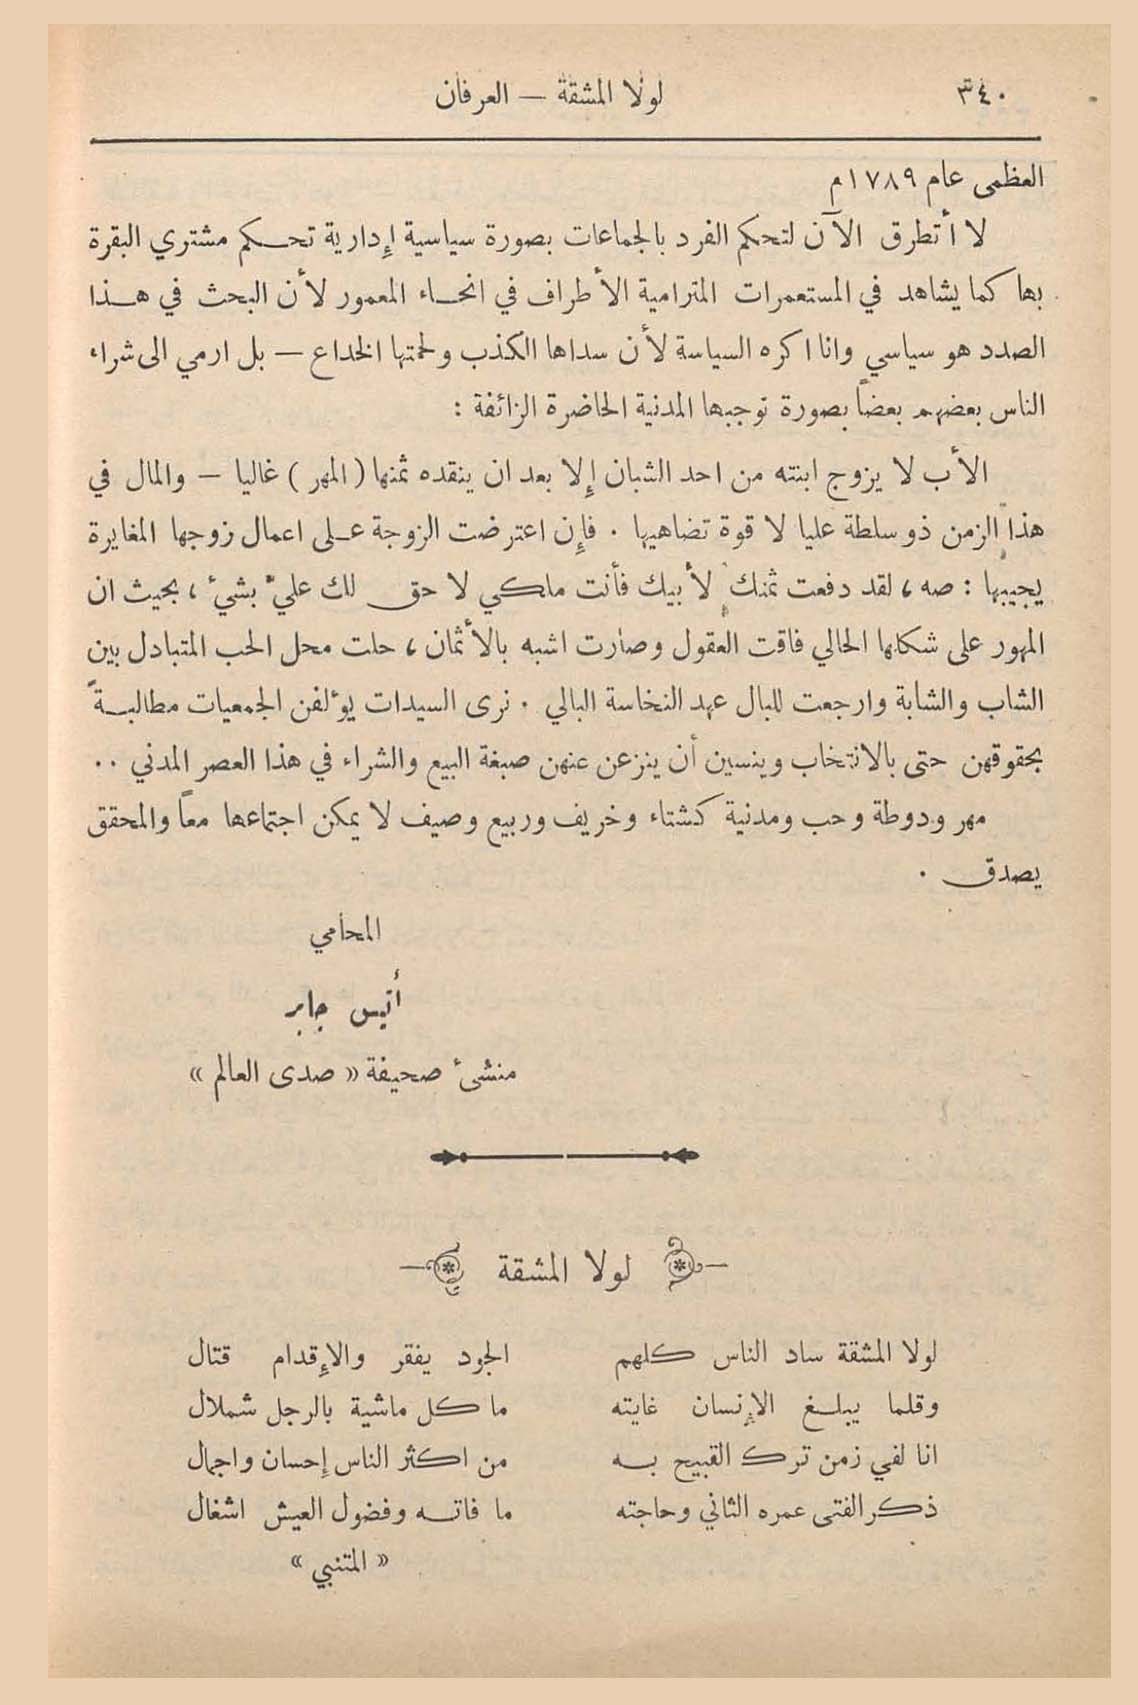 ٣٤٠
لولا المشقة — العرفان
العظمى عام ١٧٨٩م
لا أتطرق الآن لتحكم الفرد بالجماعات بصورة سياسية إدارية تحكم مشتري البقرة
بها كما يشاهد في المستعمرات المترامية الأطراف في انحاء المعمور لأن البحث في هذا
الصدد هو سياسي وانا اكره السياسة لأن سداها الكذب ولحمتها الخداع — بل ارمي الى شراء
الناس بعضهم بعضاً بصورة توجبها المدنية الحاضرة الزائفة :
الأب لا يزوج ابنته من احد الشبان إلا بعد ان ينقده ثمنها ( المهر ) غاليا — والمال في
هذا الزمن ذو سلطة عليا لا قوة تضاهيها . فإن اعترضت الزوجة على اعمال زوجها المغايرة
يجيبها : صه ، لقد دفعت ثمنك لأبيك فأنت ملكي لا حق لك عليّ بشيء ، بحيث ان
المهور على شكلها الحالي فاقت العقول وصارت اشبه بالأثمان ، حلت محل الحب المتبادل بين
الشاب والشابة وارجعت للبال عهد النخاسة البالي . نرى السيدات يؤلفن الجمعيات مطالبةً
بحقوقهن حتى بالانتخاب وينسين أن ينزعن عنهن صبغة البيع والشراء في هذا العصر المدني ..
مهر ودوطة وحب ومدنية كشتاء وخريف وربيع وصيف لا يمكن اجتماعها معاً والمحقق
يصدق .
المحامي
أنيس جابر
منشئ صحيفة « صدى العالم »
لولا المشقة
لولا المشقة ساد الناس كلهم الجود يفقر والإقدام قتال
وقلما يبلغ الإنسان غايته ما كل ماشية بالرجل شملال
انا لفي زمن ترك القبيح به من اكثر الناس إحسان واجمال
ذكر الفتى عمره الثاني وحاجته ما فاته وفضول العيش اشغال
« المتنبي »